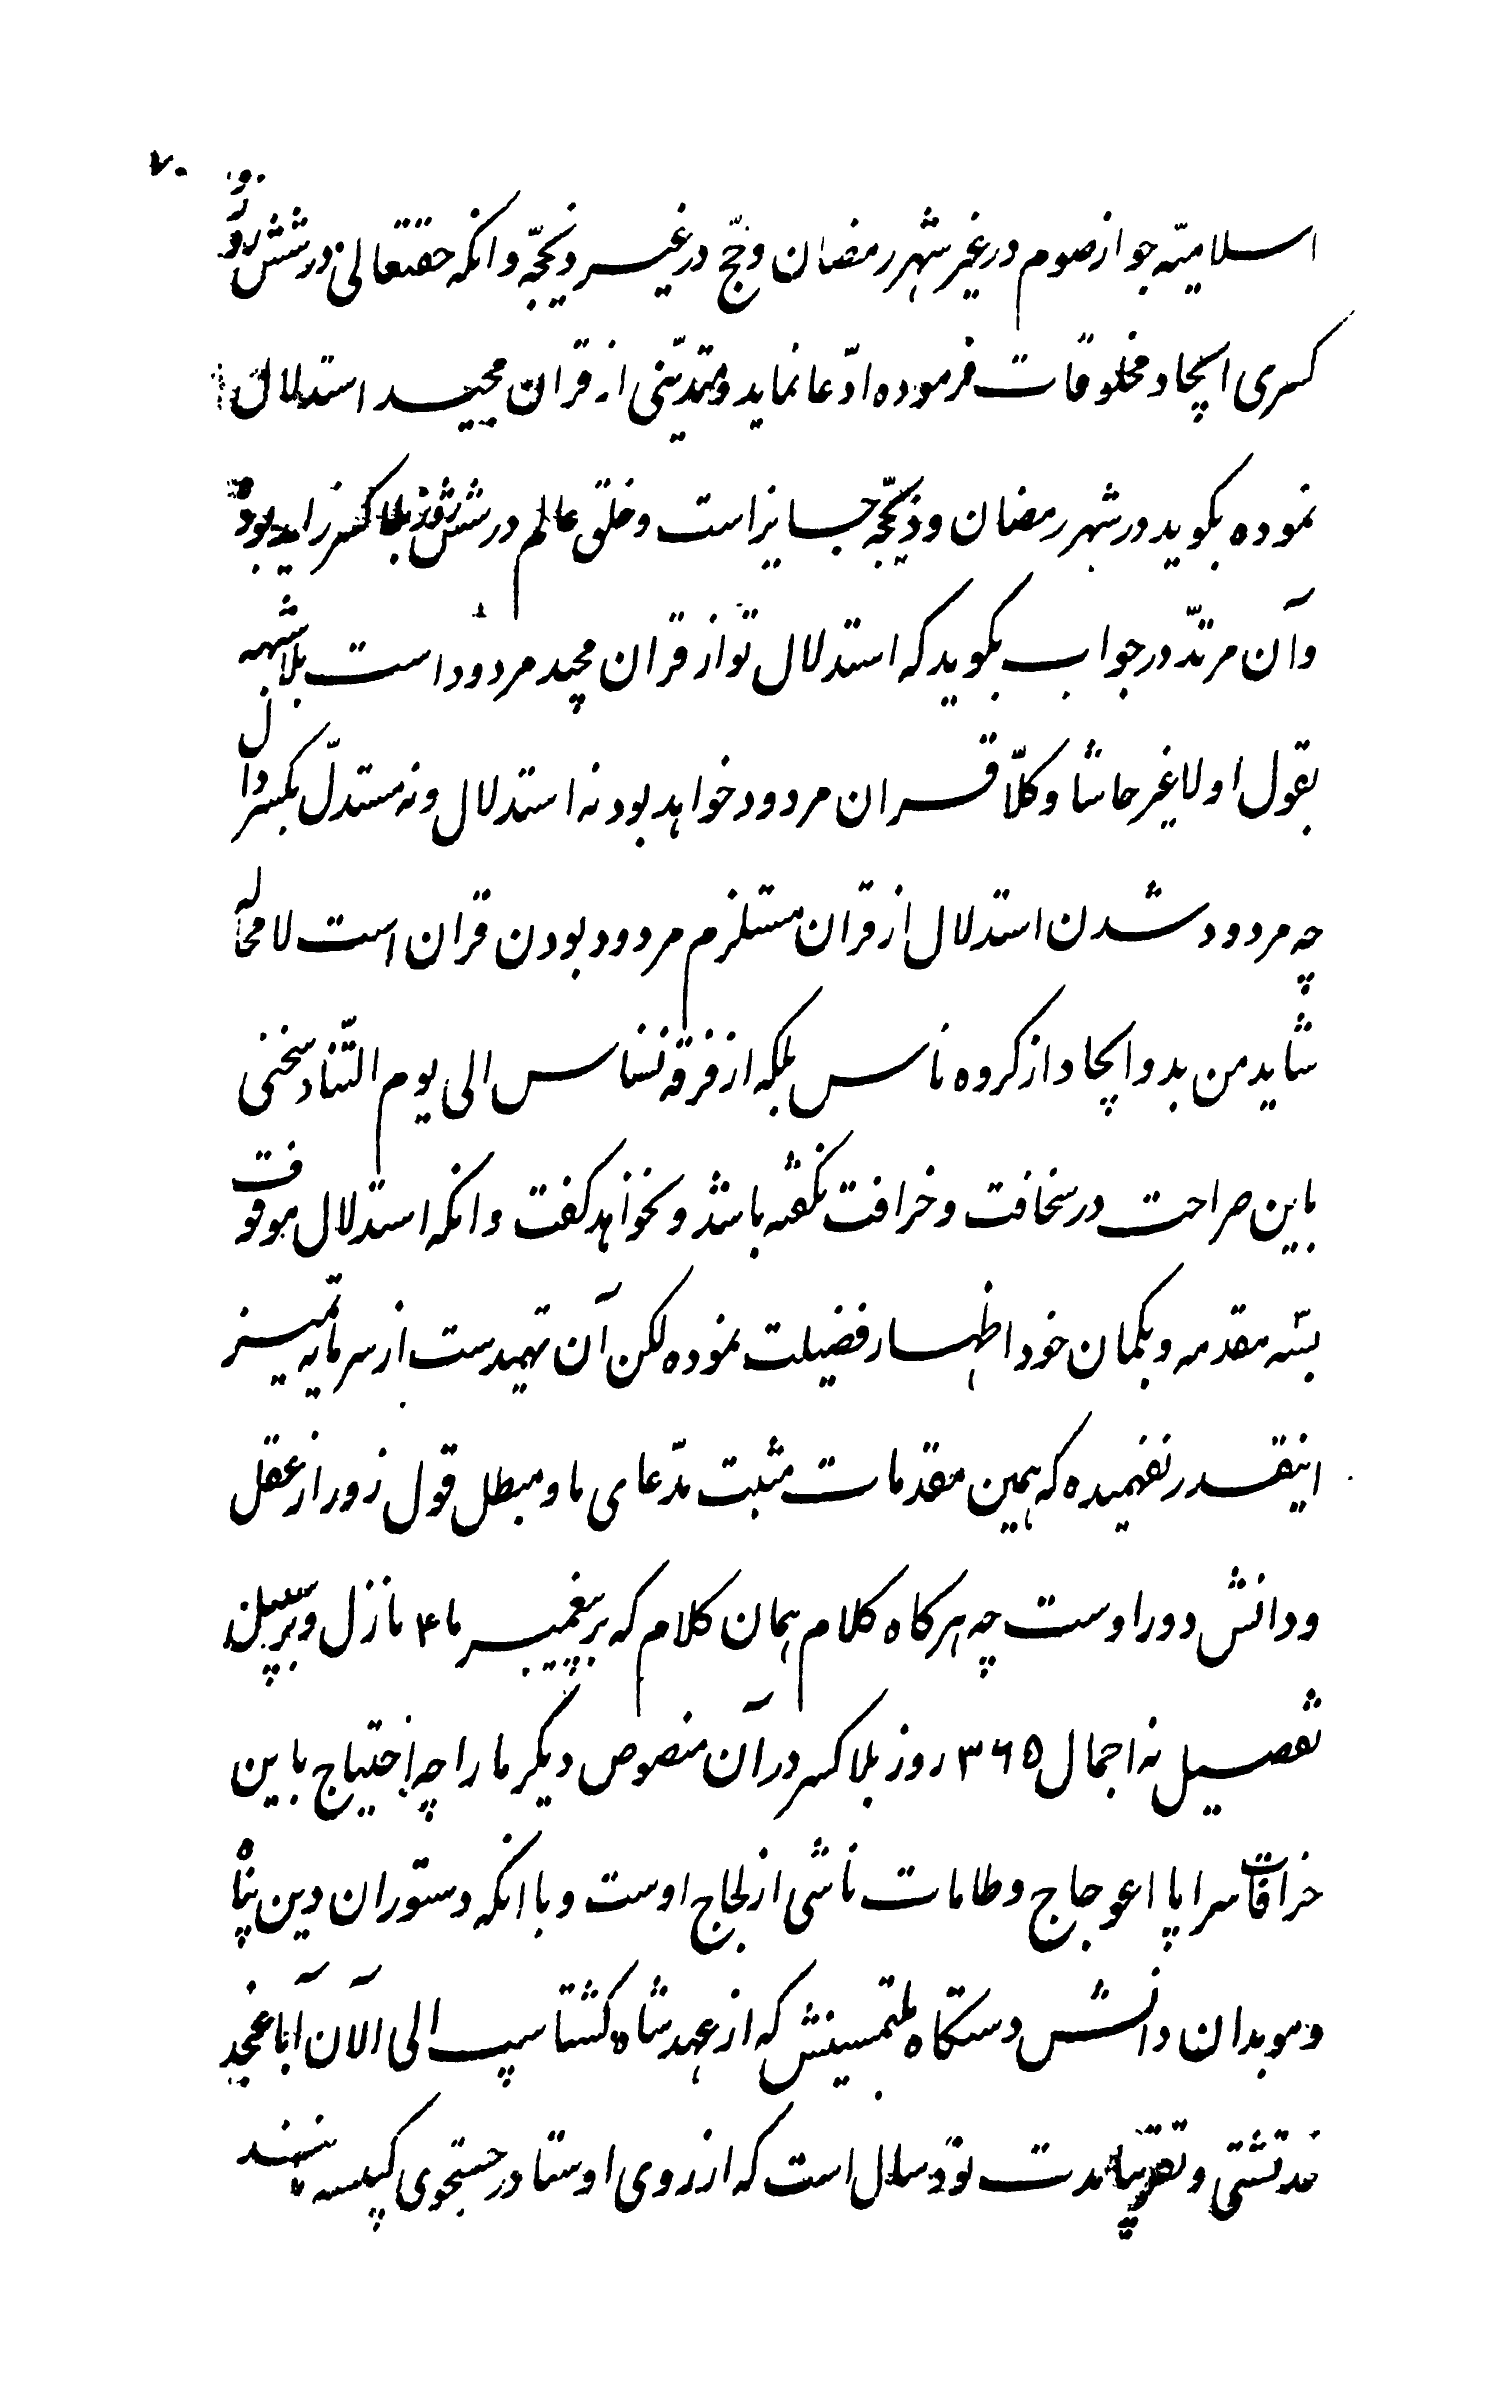 ۷۰
اسلامیّه جواز صوم در غیر شهر رمضان و حجّ در غیر ذیحجّه و انکه حقتعالی در شش روز و
کسری ایجاد مخلوقات فرموده ادّعا نماید و متدیّنی از قران مجید استدلال
نموده بکوید در شهر رمضان و ذیحجّه جایز است و خلق عالم در شش روز بلا کسر زاید بود
و آن مرتدّ در جواب بکوید که استدلال تو از قران مجید مردود است بلا شبهه
بقول او لا غیر حاشا و کلّا قران مردود خواهد بود نه استدلال و نه مستدلّ بکسر دال
چه مردود شدن استدلال از قران مستلزم مردود بودن قران است لا محاله
شاید من بدو ایجاد از کروه ناس بلکه از فرقه نسناس الی یوم التّناد سخنی
باین صراحت در سخافت و خرافت نکفته باشد و نخواهد کفت و انکه استدلال بموقوفت
بسّه مقدمه و بکمان خود اظهار فضیلت نموده لکن آن تهیدست از سرمایه تمیز
اینقدر نفهمیده که همین مقدمات مثبت مدّعای ما و مبطل قول زور از عقل
و دانش دور اوست چه هرکاه کلام همان کلام که بر پیغمبر ما ۴ نازل و بر سبیل
تفصیل نه اجمال ۳۶۵ روز بلا کسر در آن منصوص دیکر ما را چه احتیاج باین
خرافات سراپا اعوجاج و طامات ناشی از لجاج اوست و با انکه دستوران دین پناه
و موبدان دانش دستکاه ملتمسینش که از عهد شاه کشتاسپ الی الآن آبا عنجد
زرتشتی و تقریبا مدت نود سال است که از روی اوستا در جستجوی کبیسه بینند